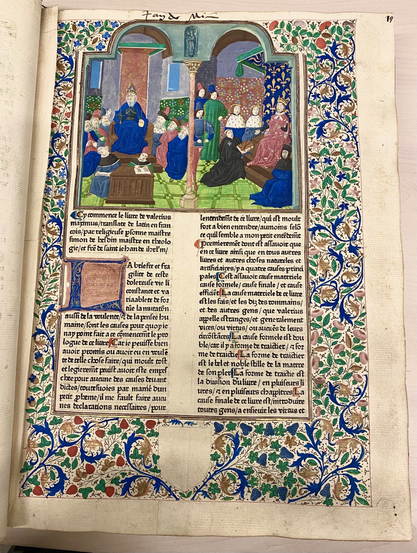 19
Cy commence le liure de valerius
maximus/translate de latin en fran
cois/par religieuse personne maistre
simon de hesdin maistre en theolo
gie/et frere de saint iehan de ihrlm/
A briefte et fra
gilite de ceste
doloreuse vie li
constance et va
riablete de for
tune la muance
aussi de la voulente/et de la prise hu
maine/sont les causes pour quoy ie
nay point faire a comencier le pro
logue de ce liure Car ie peusse bien
auoir promis ou auoir eu en voulen
te de telle chose faire/qui moult tost
et legierement puist auoir este empes
chee pour aucune des causes deuant
dictes/toutesfoies par maniere dun
petit proheme/il me fault faire aucu
nes declarations necessaires/pour
lentendement de ce liure/qui est moult
fort a bien entendre/aumoins selon
ce quil semble a mon petit entendemet
Premierement dont est assauoir que
en ce liure ainsi que en tous autres
liures et autres choses naturelles et
artificieles/y a quatre causes princi
pales Cest assauoir cause materiele
cause formele/cause finale/et cause
efficient La cause materiele de ce liure
est les fais/et les diz des rommains/
et des autres gens/que valerius
appelle estranges/et generalement
vices/ou vertus/ou aucuns de leurs
circonstances La cause formele est dou
ble/car il y a forme de traictier/et for
me de traictie La forme de traictier
est le bel et noble stille de la matiere
de son plet La forme de traictie est
la diuision du liure/en plusieurs li
ures/et en plusieurs chappitres La
cause finale de ce liure est/introduire
toutes gens/a ensieuir les vertus et